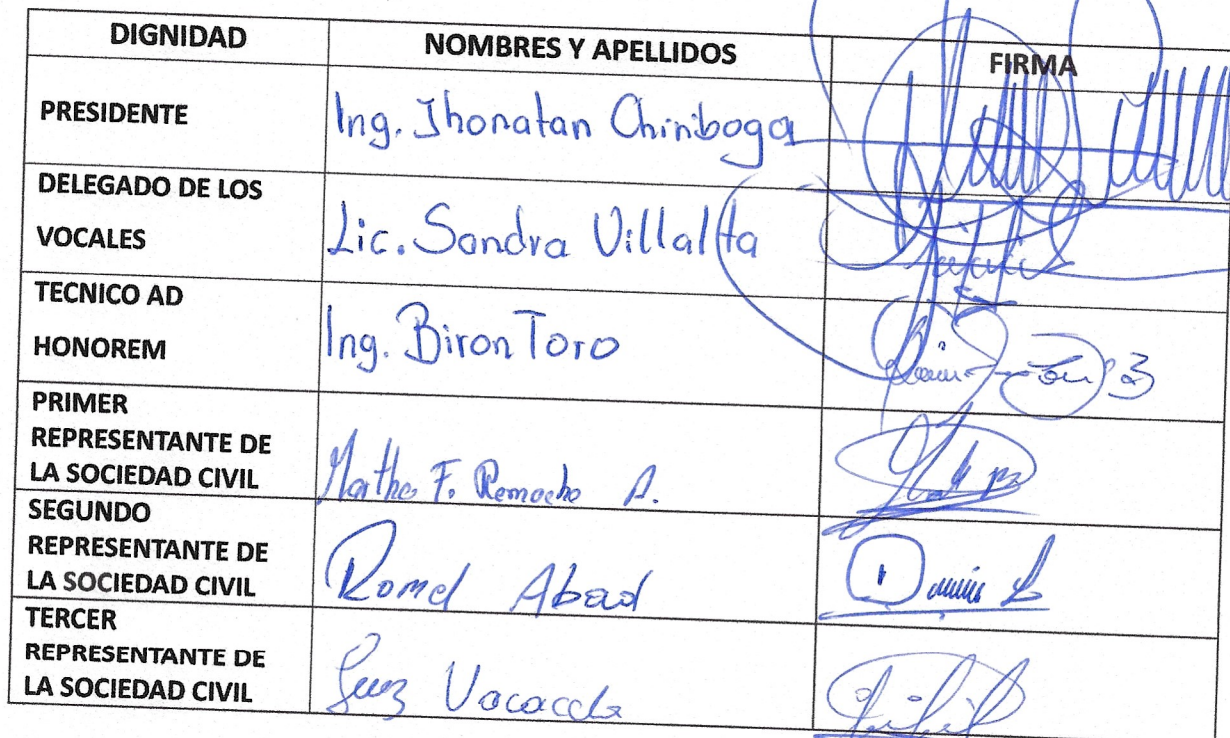 DIGNIDAD NOMBRES Y APELLIDOS FIRMA
PRESIDENTE Ing. Jhonatan Chiriboga
DELEGADO DE LOS
VOCALES Lic. Sandra Villalta
TECNICO AD
HONOREM Ing. Biron Toro
PRIMER
REPRESENTANTE DE
LA SOCIEDAD CIVIL Martha F. A.
SEGUNDO
REPRESENTANTE DE
LA SOCIEDAD CIVIL Romel Abad
TERCER
REPRESENTANTE DE
LA SOCIEDAD CIVIL